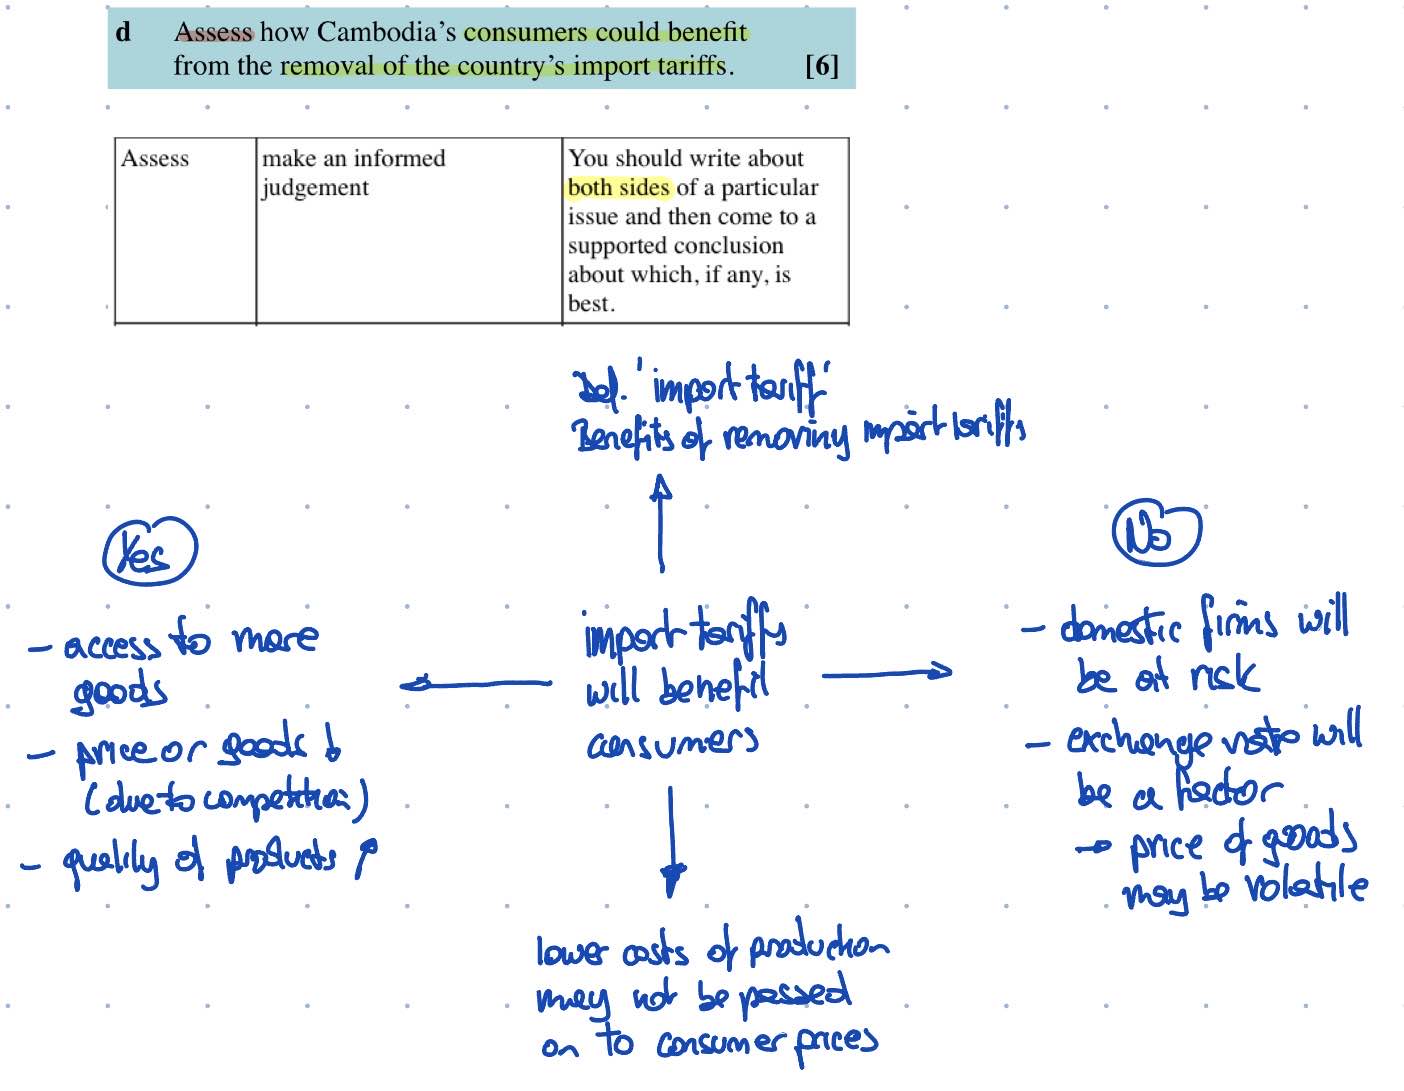 d Assess how Cambodia's consumers could benefit
from the removal of the country's import tariffs. [6]
Assess
make an informed
judgement
You should write about
both sides of a particular
issue and then come to a
supported conclusion
about which, if any, is
best.
Def. 'import tariff'
Benefits of removing import tariffs
Yes
- access to more
goods
- price or goods ↓
(due to competition)
- quality of products ↑
import tariffs
will benefit
consumers
No
- domestic firms will
be at risk
- exchange rate will
be a factor
→ price of goods
may be volatile
lower costs of production
may not be passed
on to consumer prices